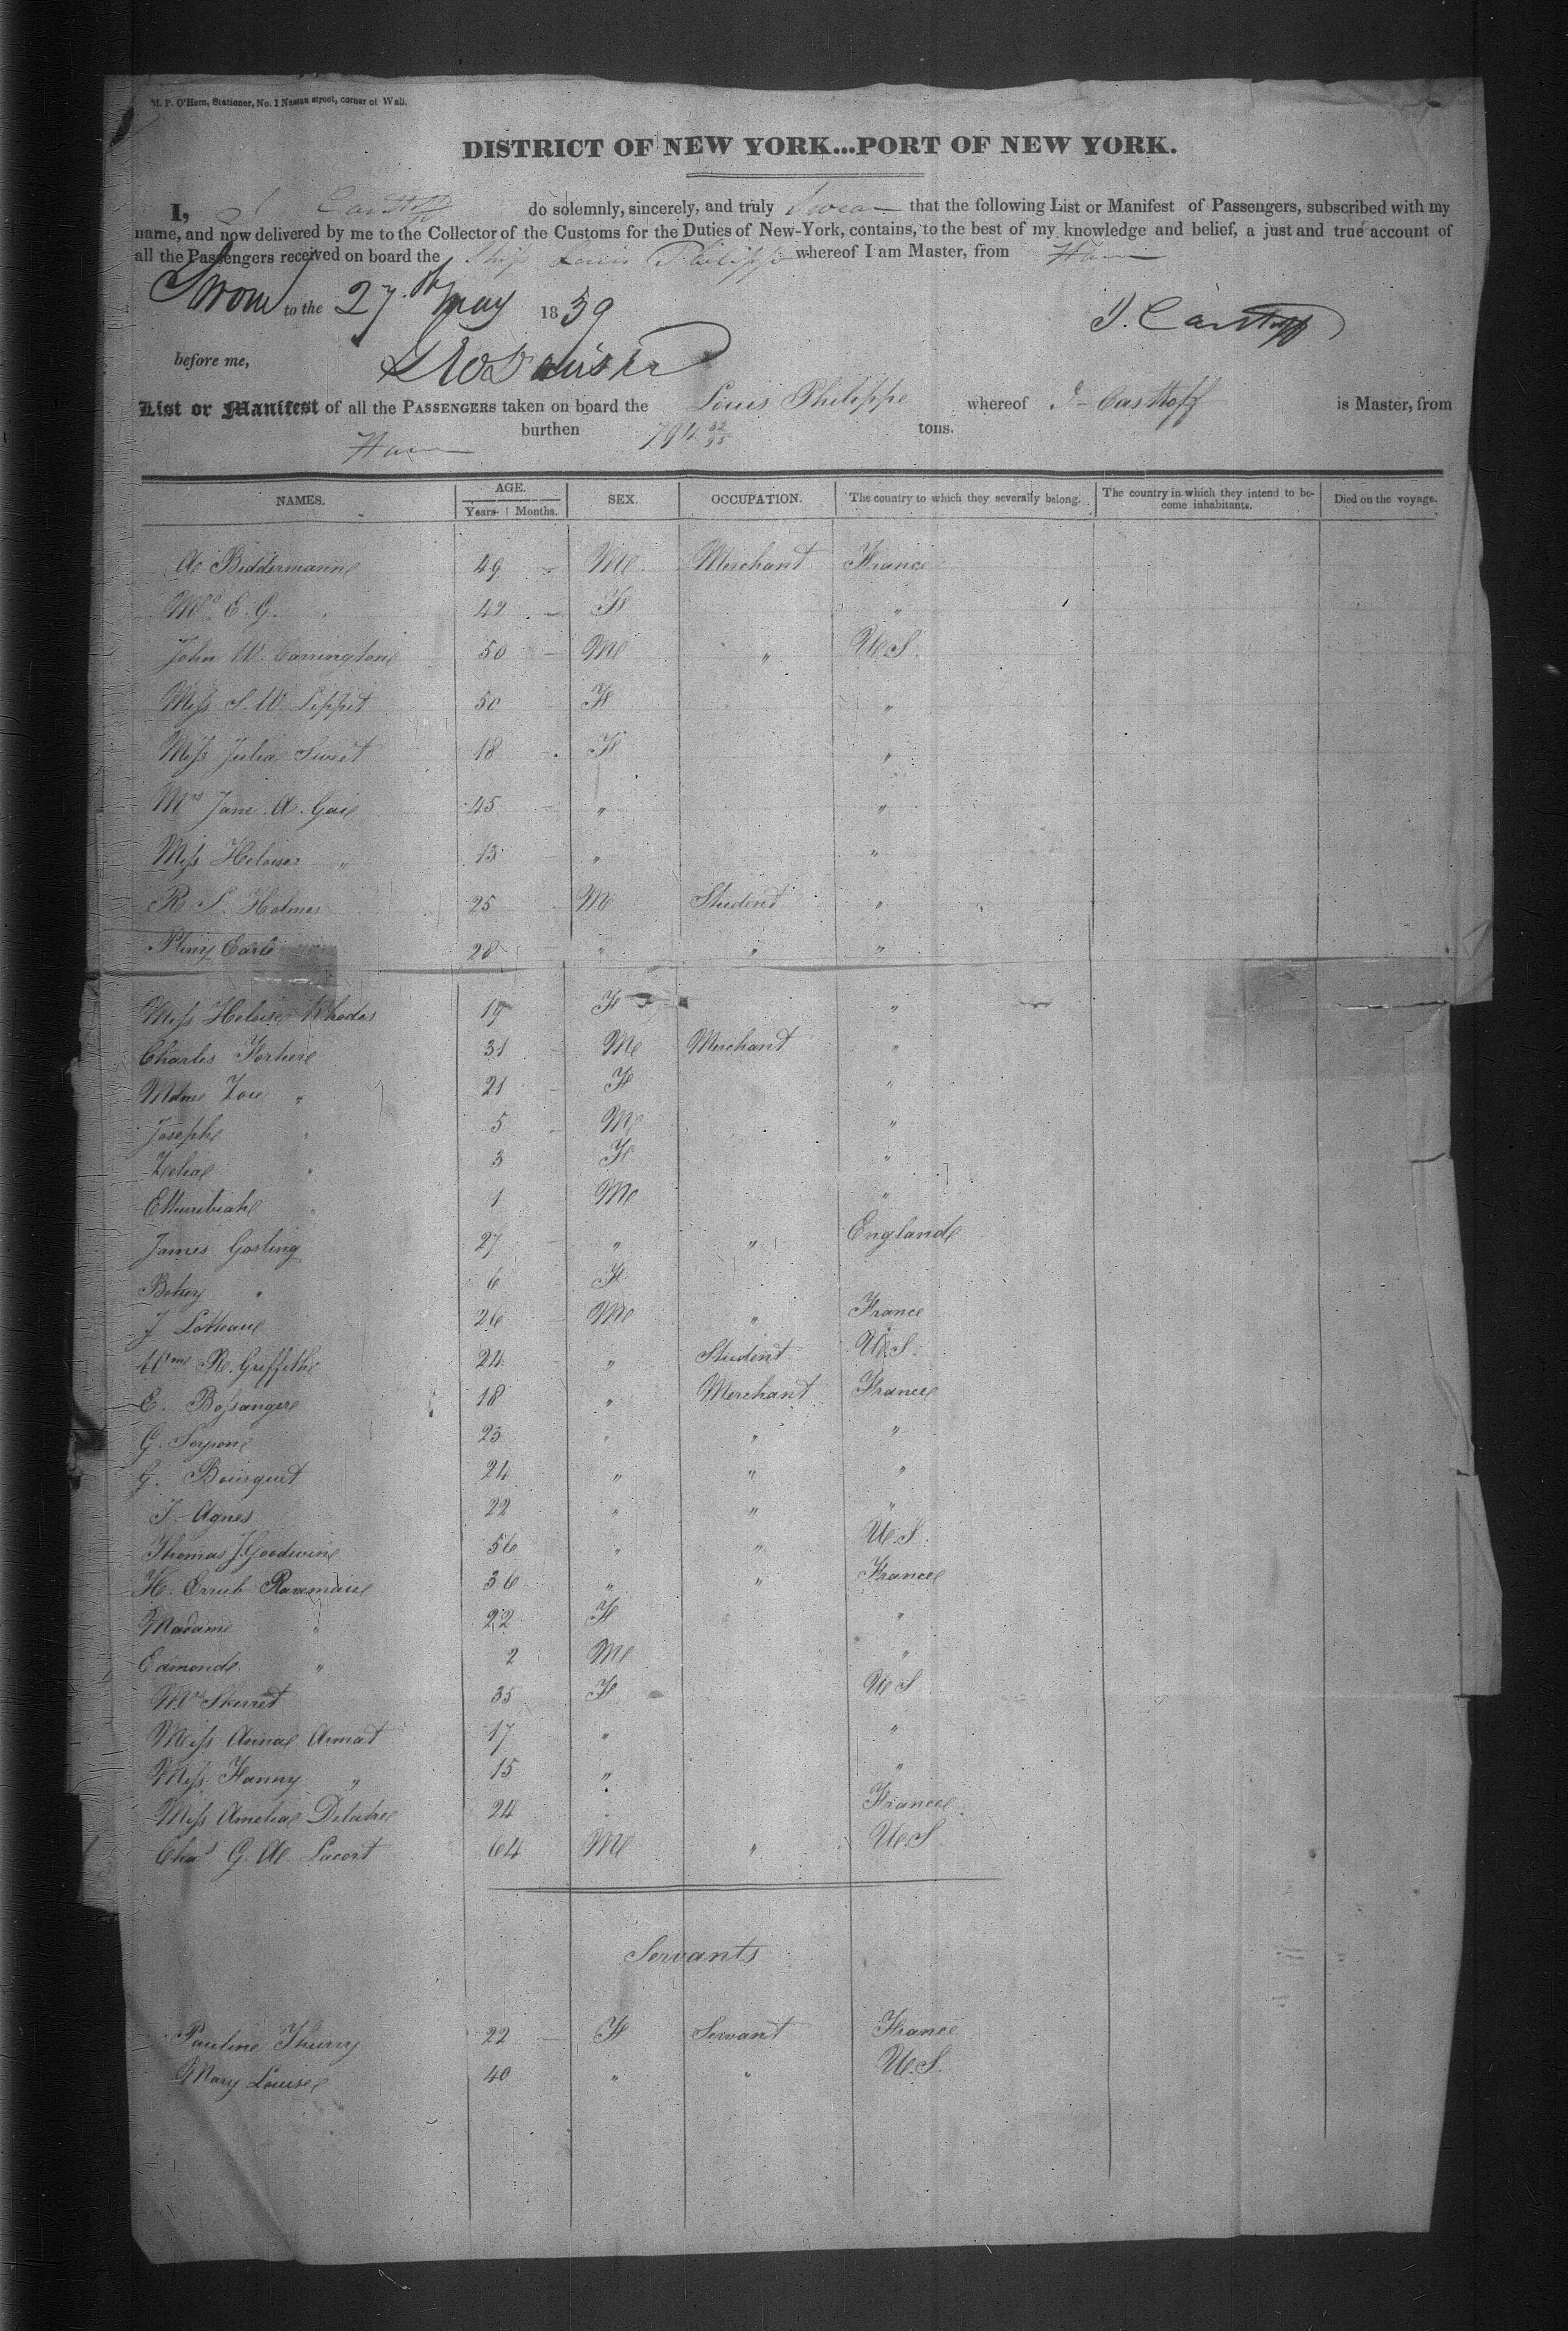 M. P. O'Hern, Stationer, No. 1 Nassau street, corner of Wall.
DISTRICT OF NEW YORK...PORT OF NEW YORK.
I, J Casttoff do solemnly, sincerely, and truly Swear that the following List or Manifest of Passengers, subscribed with my
name, and now delivered by me to the Collector of the Customs for the Duties of New-York, contains, to the best of my knowledge and belief, a just and true account of
all the Passengers received on board the Ship Louis Philippe whereof I am Master, from
Sworn to the 27th May 1839
J. Casttoff
before me,
List or Manifest of all the PASSENGERS taken on board the Louis Philippe whereof J Casttoff is Master, from
burthen 794 32/95 tons.
NAMES. AGE. SEX. OCCUPATION. The country to which they severally belong. The country in which they intend to be- Died on the voyage.
Years Months. come inhabitants.
A Biddermann 49 - M Merchant France
Mrs E. G. 42 - F "
John W. Carrington 50 - M " U.S.
Miss S. W. Lippit 50 F "
Miss Julia Sweet 18 - F "
Mrs Jane A. Gail 45 - " "
Miss Heloise " 13 " "
R. S. Holmes 25 M Student "
Pliny Earle 28 " " "
Miss Heloise Rhodes 19 F "
Charles Fortier 31 M Merchant "
Mdme Zoe " 21 F "
Joseph " 5 M "
Zelia " 3 F "
" 1 M "
James Gosling 27 " " England
Betsey " 6 F
J Lotteau 26 M " France
Wm R. Griffith 24 " Student U.S.
E. Bossange 18 " Merchant France
G. 23 " " "
G. Bousquet 24 " " "
J. Agnes 22 " " "
Thomas J. Goodwin 56 " " U.S.
H. 36 " " France
Madame " 22 F "
Edmond " 2 M "
Mrs Skerret 35 F U S
Miss Anna Armat 17 " "
Miss Fanny " 15 " "
Miss Amelia 24 " France
Chas G. A. Lacost 64 M " U.S
Servants
Pauline Thurry 22 - F Servant France
Mary Louise 40 " " U.S.